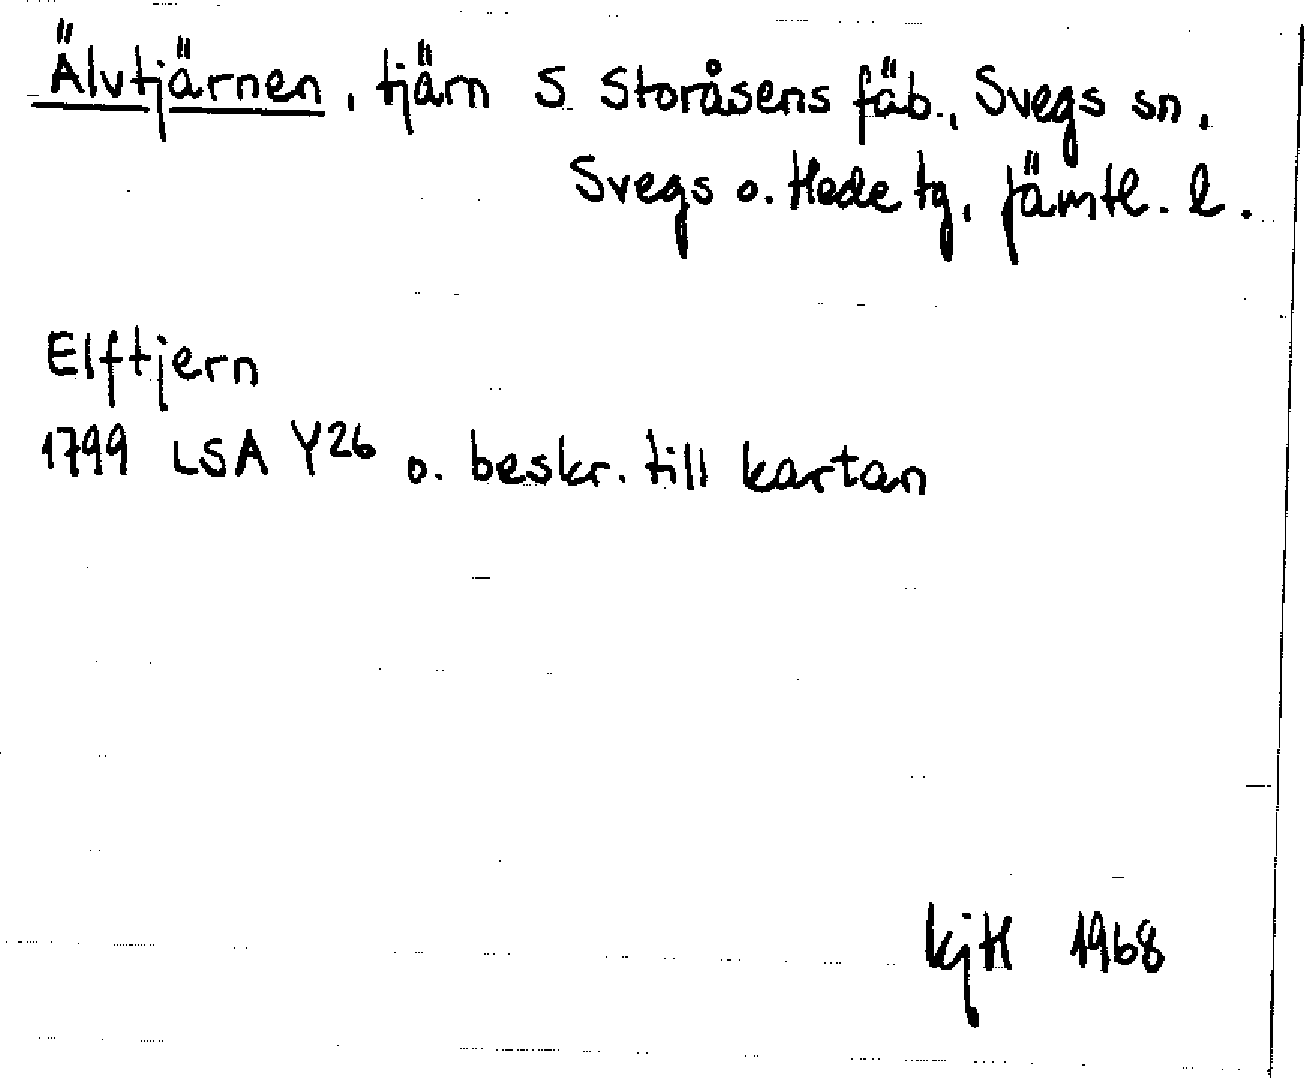 Älvtjärnen, tjärn S Storåsens fäb., Svegs sn,
Svegs o. Hede tg, Jämtl. l.
Elftjern
1799 LSA Y26 o. beskr. till kartan
KjH 1968